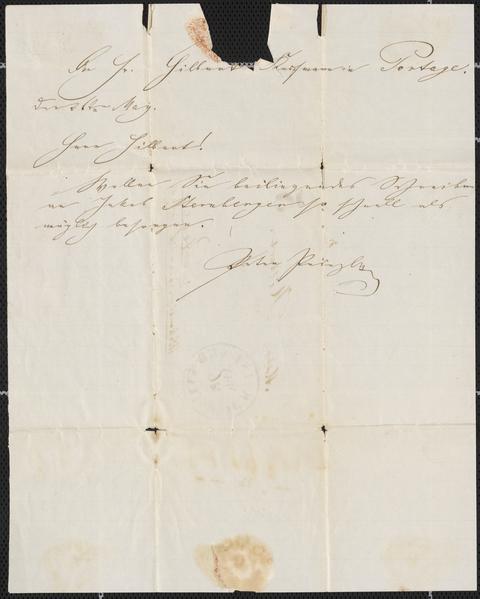 An Hr. Hilbert Kaufmann in Portage.
Den May.
Herr Hilbert!
Wollen Sie beiliegendes Schreiben
an Jakob Sternberger so schnell als
möglich besorgen.
Peter